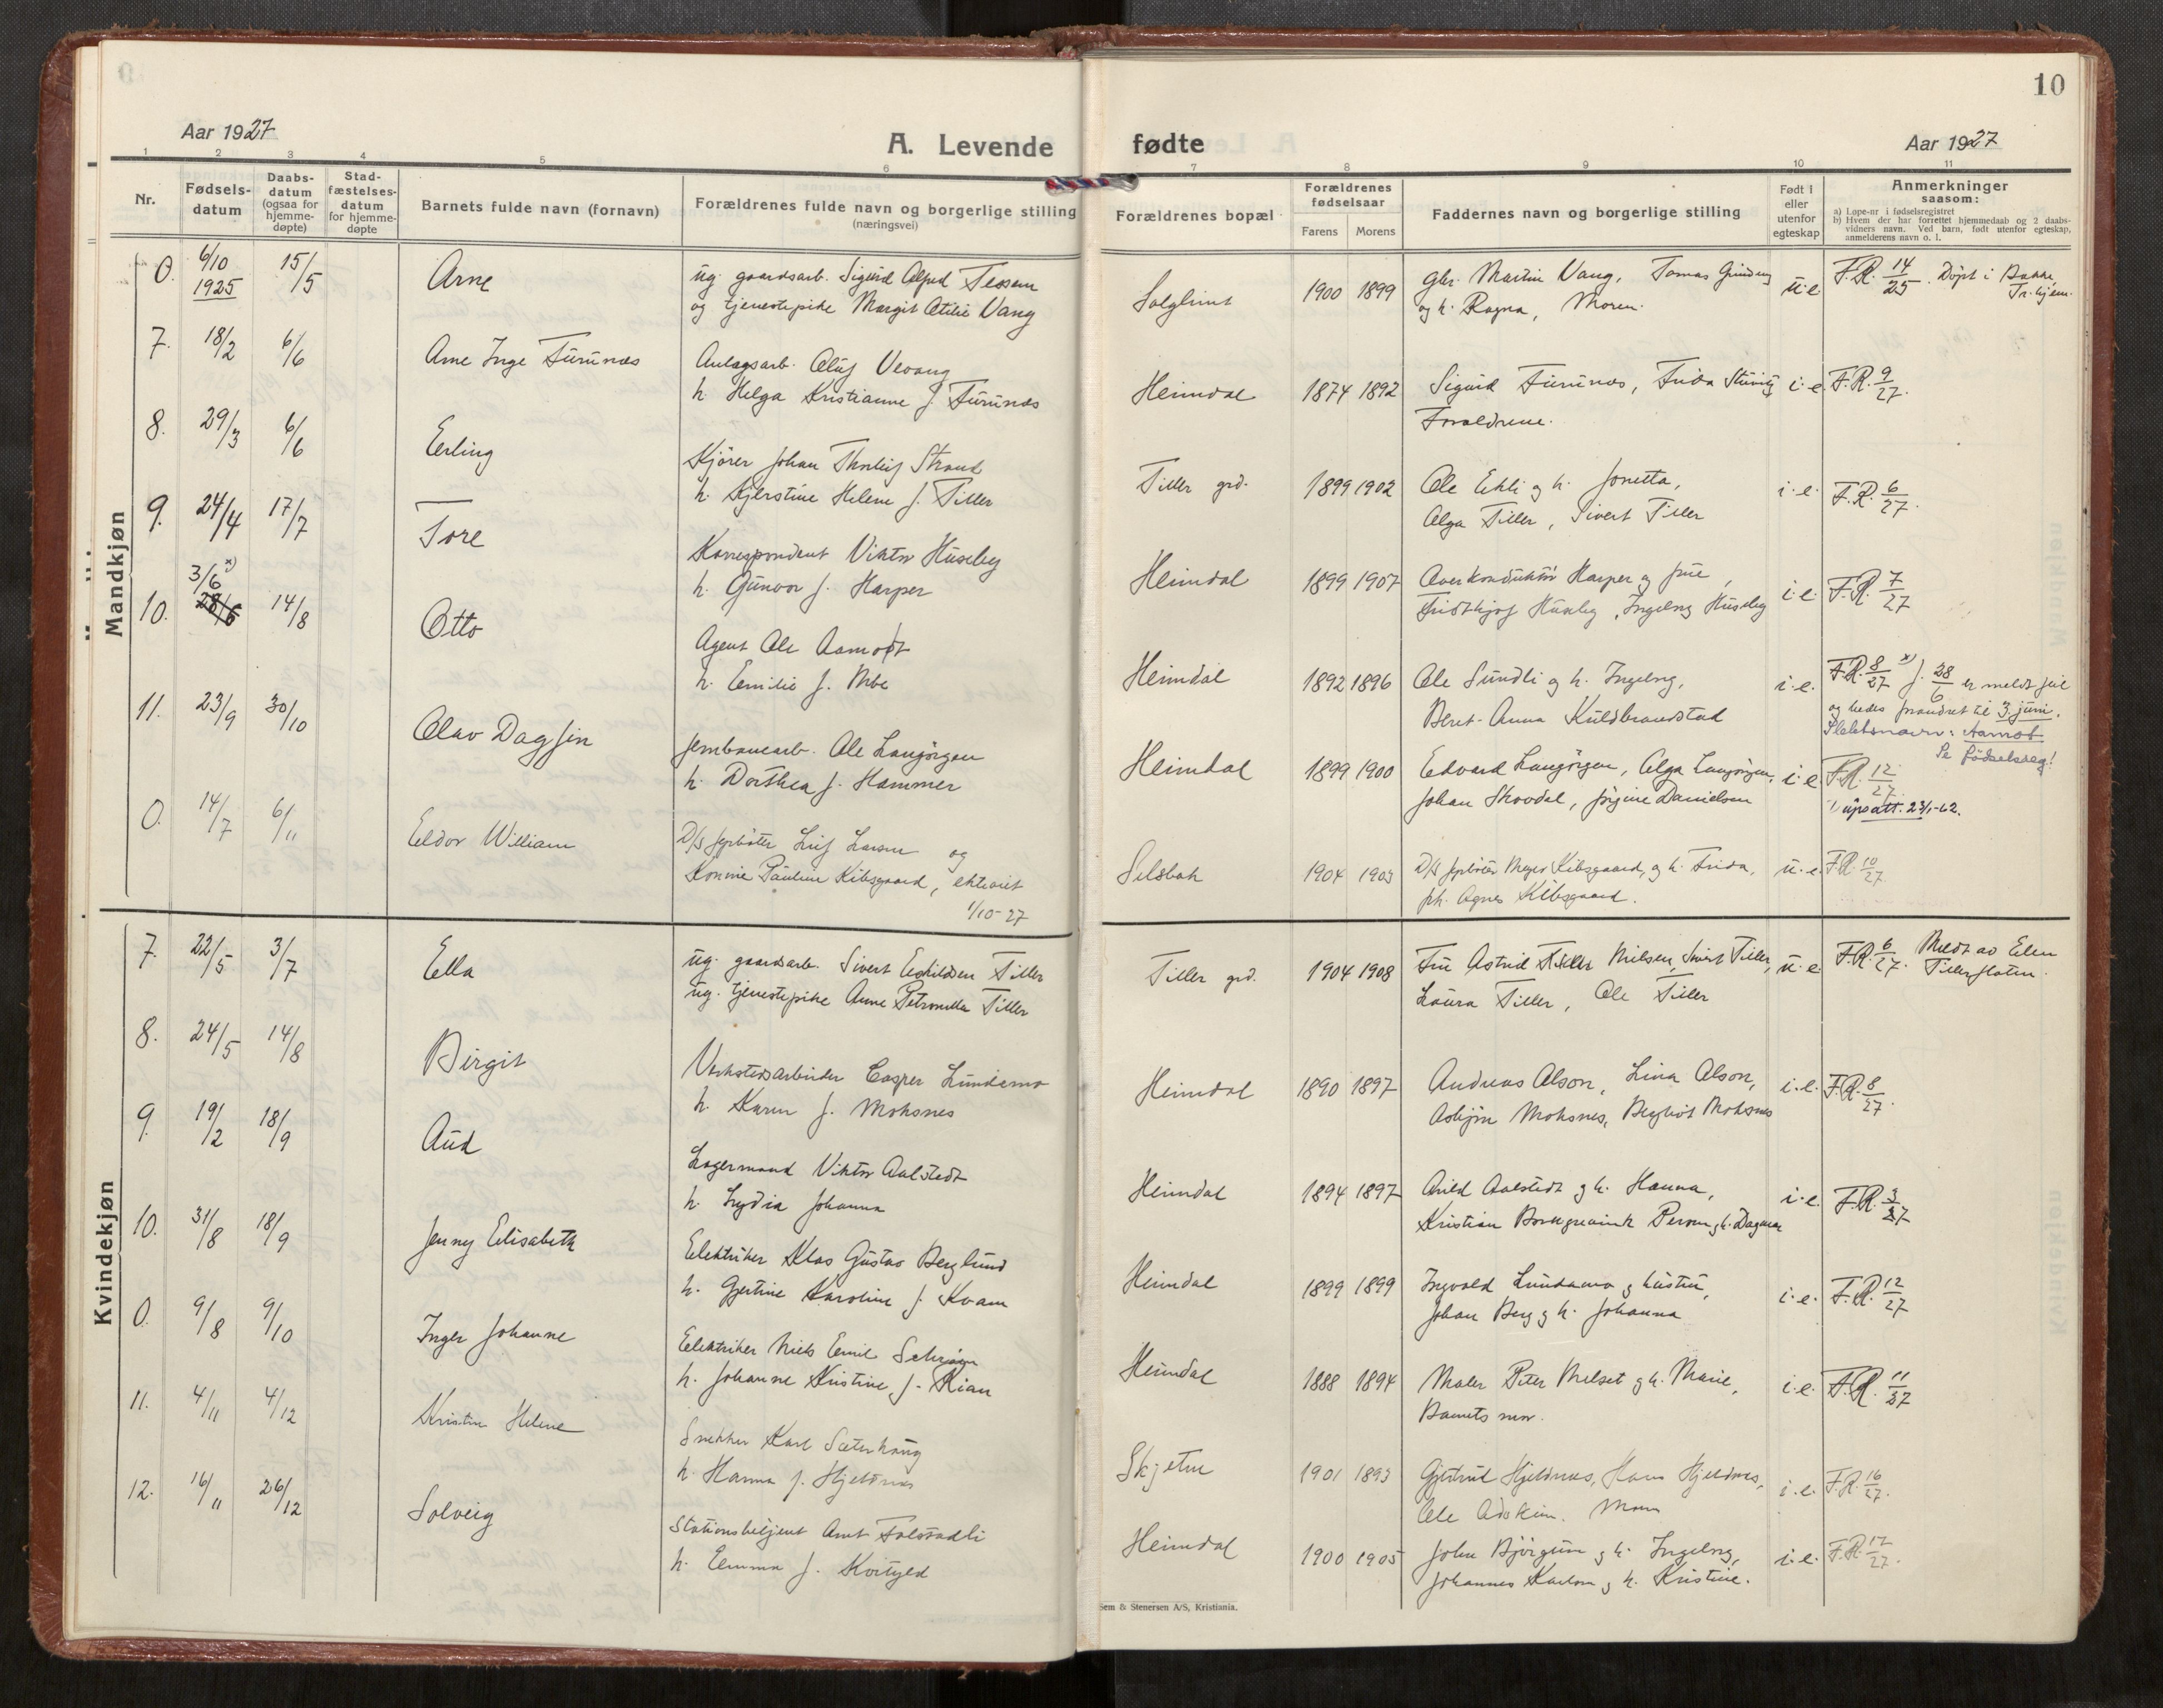 10
Aar 1927
A. Levende fødte
Aar 1927
1 2 3 4 5 6 7 8 9 10 11
Nr.
Fødsels-
datum
Daabs-
datum
(ogsaa for
hjemme-
døpte)
Stad-
fæstelses-
datum
for hjemme-
døpte
Barnets fulde navn (fornavn)
Forældrenes fulde navn og borgerlige stilling
(næringsvei)
Forældrenes bopæl
Forældrenes
fødselsaar
Farens Morens
Faddernes navn og borgerlige stilling
Født i
eller
utenfor
egteskap
Anmerkninger
saasom:
a) Løpe-nr i fødselsregistret
b) Hvem der har forrettet hjemmedaab og 2 daabs-
vidners navn. Ved barn, født utenfor egteskap,
anmelderens navn o. l.
Mandkjøn
0. 6/10 1925 15/5 Arne
ug. gaardsarb. Sigurd Alfred Tessem
og tjenestepike Margit Otilie Vang
Solglimt 1900 1899
Gbr. Martin Vang, Tomas
og h. Ragna, Moren.
u.e. F.R. 14/25. Døpt i Bakke
Tr.hjem.
7. 18/2 6/6 Arne Inge Furunes
Anlagsarb. Oluf Vevang
h. Helga Kristianne f. Furunes
Heimdal 1874 1892
Sigurd Furunes, Frida
Foreldrene.
i.e. F.R. 9/27.
8. 29/3 6/6 Erling
Kjører Johan Thorleif Strand
h. Kjerstine Helene f. Tiller
Tiller grd. 1899 1902
Ole Ekli og h. Jonetta,
Olga Tiller, Sivert Tiller
i.e. F.R. 6/27.
9. 24/4 17/7 Tore
Korrespondent Viktor Huseby
h. Gunvor f. Harper
Heimdal 1899 1907
Overkonduktør Harper og frue,
Fridthjof Huseby, Ingeborg Huseby
i.e. F.R. 7/27
10. 3/6 x) 28/6 14/8 Otto
Agent Ole Aamodt
h. Emilie f. Moe
Heimdal 1892 1896
Ole Sundli og h. Ingebrg,
Beret-Anna Kuldbrandstad
i.e. F.R. 8/27 x) f. 28/6 er meldt feil
og bedes forandret til 3. juni.
Slektsnavn: Aamot
Se fødselsreg!
11. 23/9 30/10 Olav Dagfin
Jernbanearb. Ole Langørgen
h. Dorthea f. Hammer
Heimdal 1899 1900
Edvard Langørgen, Olga Langørgen,
Johan Skovdal, Jørgine Danielsen
i.e. F.R. 12/27.
dåpsatt. 23/1-62.
0. 14/7 6/11 Eldor William
Leif Larsen og
Konnie Pauline Kibsgaard, ekteviet
1/10-27
Selsbak 1904 1903
Meyer Kibsgaard, og h. Frida,
frk. Agnes Kibsgaard.
u.e. F.R. 10/27.
Kvindekjøn
7. 22/5 3/7 Ella
ug. gaardsarb. Sivert Eskildsen Tiller
ug. tjenestepike Anne Petronella Tiller
Tiller grd. 1904 1908
Fru Astrid Tiller Nielsen, Sivert Tiller,
Laura Tiller, Ole Tiller
u.e. F.R. 6/27. Meldt av Elen
Tillerflaten.
8. 24/5 14/8 Birgit
Verkstedsarbeider Casper Lundemo
h. Karen f. Moksnes
Heimdal 1890 1897
Andreas Olson, Lina Olson,
Asbjørn Moksnes, Bergliot Moksnes
i.e. F.R. 8/27.
9. 19/2 18/9 Aud
Lagermand Viktor Aalstedt
h. Lydia Johanna
Heimdal 1894 1897
Arild Aalstedt og h. Hanna,
Kristian Borchgrevink Person og h. Dagmar
i.e. F.R. 3/27
10. 31/8 18/9 Jenny Elisabeth
Elektriker Klas Gustav Berglund
h. Gjertine Karoline f. Kvam
Heimdal 1899 1899
Ingvald Lundamo og hustru,
Johan Berg og h. Johanna
i.e. F.R. 12/27
0. 9/8 9/10 Inger Johanne
Elektriker Niels Emil
h. Johanne Kristine f. Rian
Heimdal 1888 1894
Maler Peter Melset og h. Marie,
Barnets mor.
i.e. F.R. 11/27
11. 4/11 4/12 Kristine Helene
Snekker Karl Sæterhaug
h. Hanna f. Hjeldnes
Skjetne 1901 1893
Gjertrud Hjeldnes, Hans Hjeldnes,
Ole Moren
i.e. F.R. 16/27.
12. 16/11 26/12 Solveig
Stationsbetjent Arnt Folstadli
h. Emma f. Kvitfjeld
Heimdal 1900 1905
John Bjørgum og h. Ingebrg,
Johannes Karlson og h. Kristine.
i.e. F.R. 17/27.
Sem & Stenersen A/S, Kristiania.